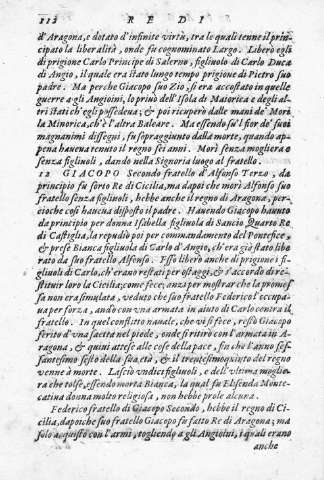 112 RE DI
d'Aragona, e dotato d'infinite virtù, tra le quali tenne il prin-
cipato la liberalità, onde fu cognominato Largo. Liberò egli
di prigione Carlo Principe di Salerno, figliuolo di Carlo Duca
di Angio, il quale era stato lungo tempo prigione di Pietro suo
padre. Ma perche Giacopo suo Zio, si era accostato in quelle
guerre a gli Angioini, lo priuò dell'Isola di Maiorica e de gli al-
tri stati ch'egli possedeua; & poi ricuperò dalle mani de' Mori
la Minorica, ch'è l'altra Baleare. Ma essendo su'l fior de' suoi
magnanimi dissegni, fu sopraggiunto dalla morte, quando ap-
pena haueua tenuto il regno sei anni. Morì senza mogliera e
senza figliuoli, dando nella Signoria luogo al fratello.
12 GIACOPO Secondo fratello d'Alfonso Terzo, da
principio fu sorto Re di Cicilia, ma dapoi che morì Alfonso suo
fratello senza figliuoli, hebbe anche il regno di Aragona, per-
cioche così haueua disposto il padre. Hauendo Giacopo hauuto
da principio per donna Isabella figliuola di Sancio Quarto Re
di Castiglia, la repudiò poi per commandamento del Pontefice,
& prese Bianca figliuola di Carlo d'Angio, ch'era già stato libe
rato da suo fratello Alfonso. Esso liberò anche di prigione i fi-
gliuoli di Carlo, ch'erano restati per ostaggi, & s'accordò di re-
stituir loro la Cicilia; come fece; anzi per mostrar che la promes
sa non era simulata, veduto che suo fratello Federico l'occupa-
ua per forza, andò con una armata in aiuto di Carlo contra il
fratello. In quel conflitto nauale, che vi si fece, restò Giacopo
ferito d'vna saetta nel piede, onde si ritirò con l'armata in A-
ragona, & quiui attese alle cose della pace, fin che l'anno ses-
santesimo sesto della sua età, & il trentesimoquinto del regno
venne à morte. Lasciò vndici figliuoli, e dell'vltima moglie-
ra che tolse, essendo morta Bianca, la qual fu Elisenda Monte-
catina donna molto religiosa, non hebbe prole alcuna.
Federico fratello di Giacopo Secondo, hebbe il regno di Ci-
cilia, dapoi che suo fratello Giacopo fu fatto Re di Aragona; ma
solo acquistò con l'armi, togliendo a gli Angioini, i quali erano
anche